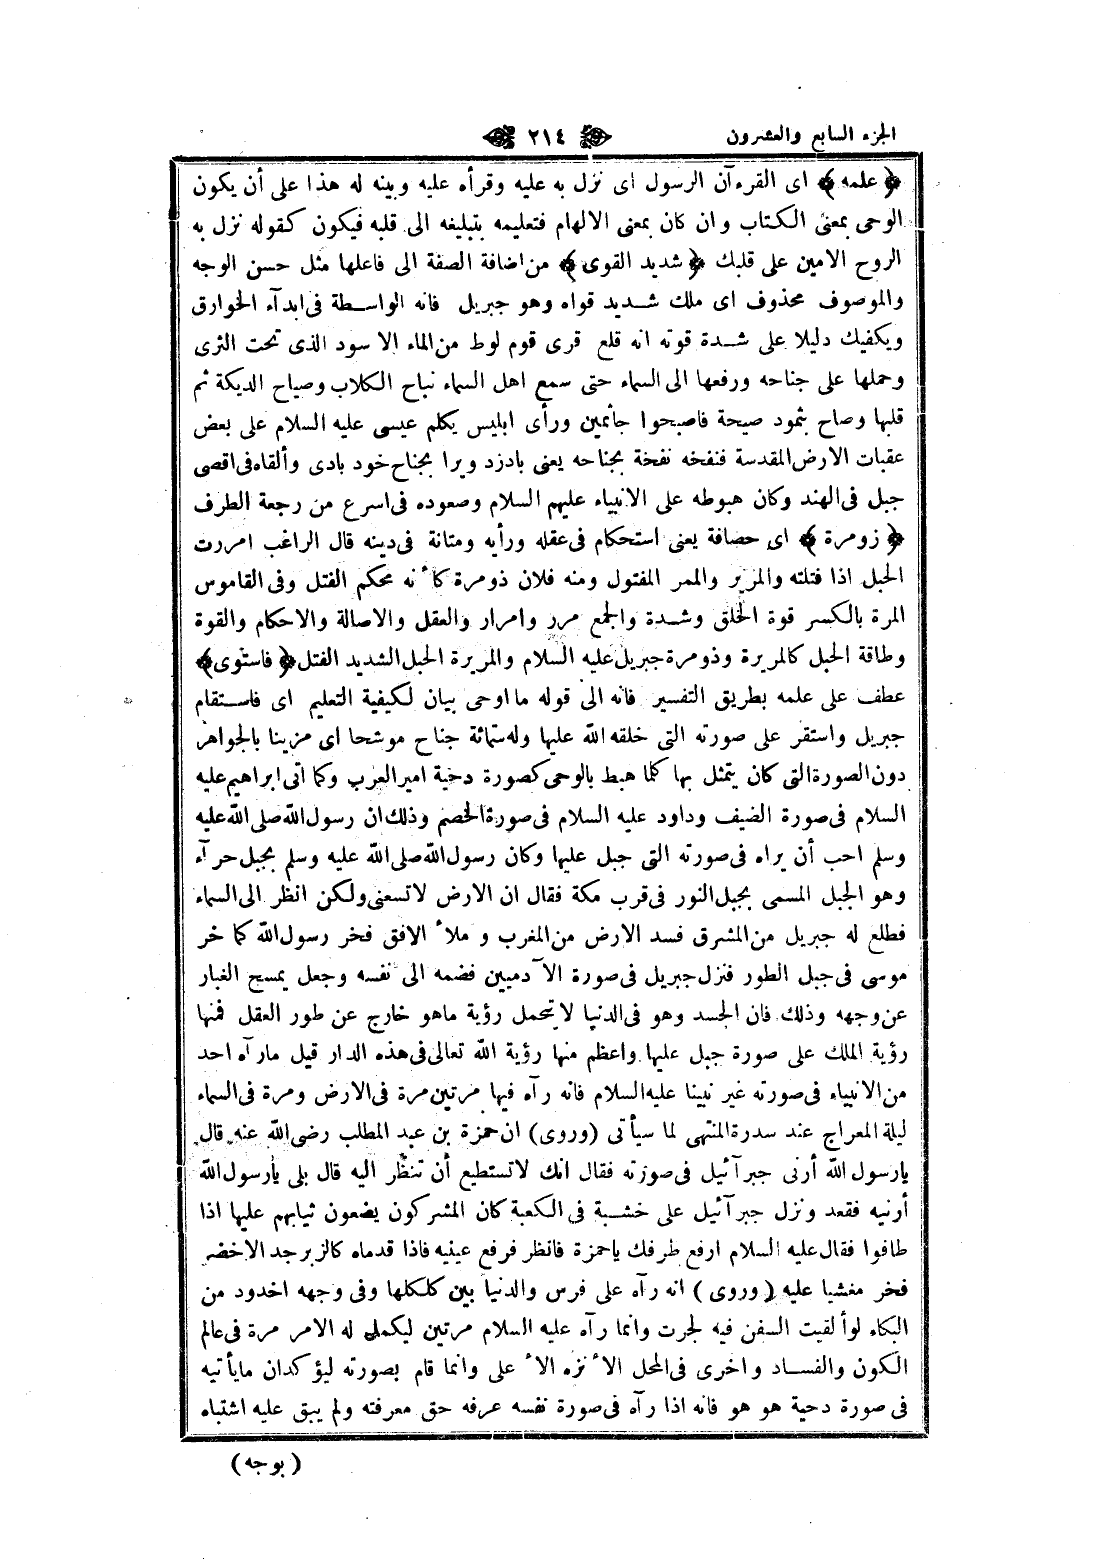 الجزء السابع والعشرون ٢١٤
﴿ علمه ﴾ اى القرءآن الرسول اى نزل به عليه وقرأه عليه وبينه له هذا على أن يكون
الوحى بمعنى الكتاب وان كان بمعنى الالهام فتعليمه بتبليغه الى قلبه فيكون كقوله نزل به
الروح الامين على قلبك ﴿ شديد القوى ﴾ من اضافة الصفة الى فاعلها مثل حسن الوجه
والموصوف محذوف اى ملك شديد قواه وهو جبريل فانه الواسطة فى ابدآء الخوارق
ويكفيك دليلا على شدة قوته انه قلع قرى قوم لوط من الماء الاسود الذى تحت الثرى
وحملها على جناحه ورفعها الى السماء حتى سمع اهل السماء نباح الكلاب وصياح الديكة ثم
قلبها وصاح بثمود صيحة فاصبحوا جاثمين ورأى ابليس يكلم عيسى عليه السلام على بعض
عقبات الارض المقدسة فنفخه نفخة بجناحه يعنى بادزد ويرا بجناح خود بادى وألقاه فى اقصى
جبل فى الهند وكان هبوطه على الانبياء عليهم السلام وصعوده فى اسرع من رجعة الطرف
﴿ ذومرة ﴾ اى حصافة يعنى استحكام فى عقله ورأيه ومتانة فى دينه قال الراغب امررت
الحبل اذا فتلته والمرير والممر المفتول ومنه فلان ذومرة كأنه محكم الفتل وفى القاموس
المرة بالكسر قوة الخلق وشدة والجمع مرر وامرار والعقل والاصالة والاحكام والقوة
وطاقة الحبل كالمريرة وذومرة جبريل عليه السلام والمريرة الحبل الشديد الفتل ﴿ فاستوى ﴾
عطف على علمه بطريق التفسير فانه الى قوله ما اوحى بيان لكيفية التعليم اى فاستقام
جبريل واستقر على صورته التى خلقه الله عليها وله ستمائة جناح موشحا اى مزينا بالجواهر
دون الصورة التى كان يتمثل بها كلما هبط بالوحى كصورة دحية امير العرب وكما اتى ابراهيم عليه
السلام فى صورة الضيف وداود عليه السلام فى صورة الخصم وذلك ان رسول الله صلى الله عليه
وسلم احب أن يراه فى صورته التى جبل عليها وكان رسول الله صلى الله عليه وسلم بجبل حرآء
وهو الجبل المسمى بجبل النور فى قرب مكة فقال ان الارض لاتسعنى ولكن انظر الى السماء
فطلع له جبريل من المشرق فسد الارض من المغرب وملأ الافق فخر رسول الله كما خر
موسى فى جبل الطور فنزل جبريل فى صورة الآدميين فضمه الى نفسه وجعل يمسح الغبار
عن وجهه وذلك فان الجسد وهو فى الدنيا لاتحمل رؤية ماهو خارج عن طور العقل فمنها
رؤية الملك على صورة جبل عليها واعظم منها رؤية الله تعالى فى هذه الدار قيل مارآه احد
من الانبياء فى صورته غير نبينا عليه السلام فانه رآه فيها مرتين مرة فى الارض ومرة فى السماء
ليلة المعراج عند سدرة المنتهى لما سيأتى (وروى) ان حمزة بن عبد المطلب رضى الله عنه قال
يارسول الله أرنى جبرآئيل فى صورته فقال انك لاتستطيع أن تنظر اليه قال بلى يارسول الله
أرنيه فقعد ونزل جبرآئيل على خشبة فى الكعبة كان المشركون يضعون ثيابهم عليها اذا
طافوا فقال عليه السلام ارفع طرفك ياحمزة فانظر فرفع عينيه فاذا قدماه كالزبرجد الاخضر
فخر مغشيا عليه (وروى) انه رآه على فرس والدنيا بين كلكلها وفى وجهه اخدود من
البكاء لوألقيت السفن فيه لجرت وانما رآه عليه السلام مرتين ليكمل له الامر مرة فى عالم
الكون والفساد واخرى فى المحل الأنزه الأعلى وانما قام بصورته ليؤكدان مايأتيه
فى صورة دحية هو هو فانه اذا رآه فى صورة نفسه عرفه حق معرفته ولم يبق عليه اشتباه
(بوجه)